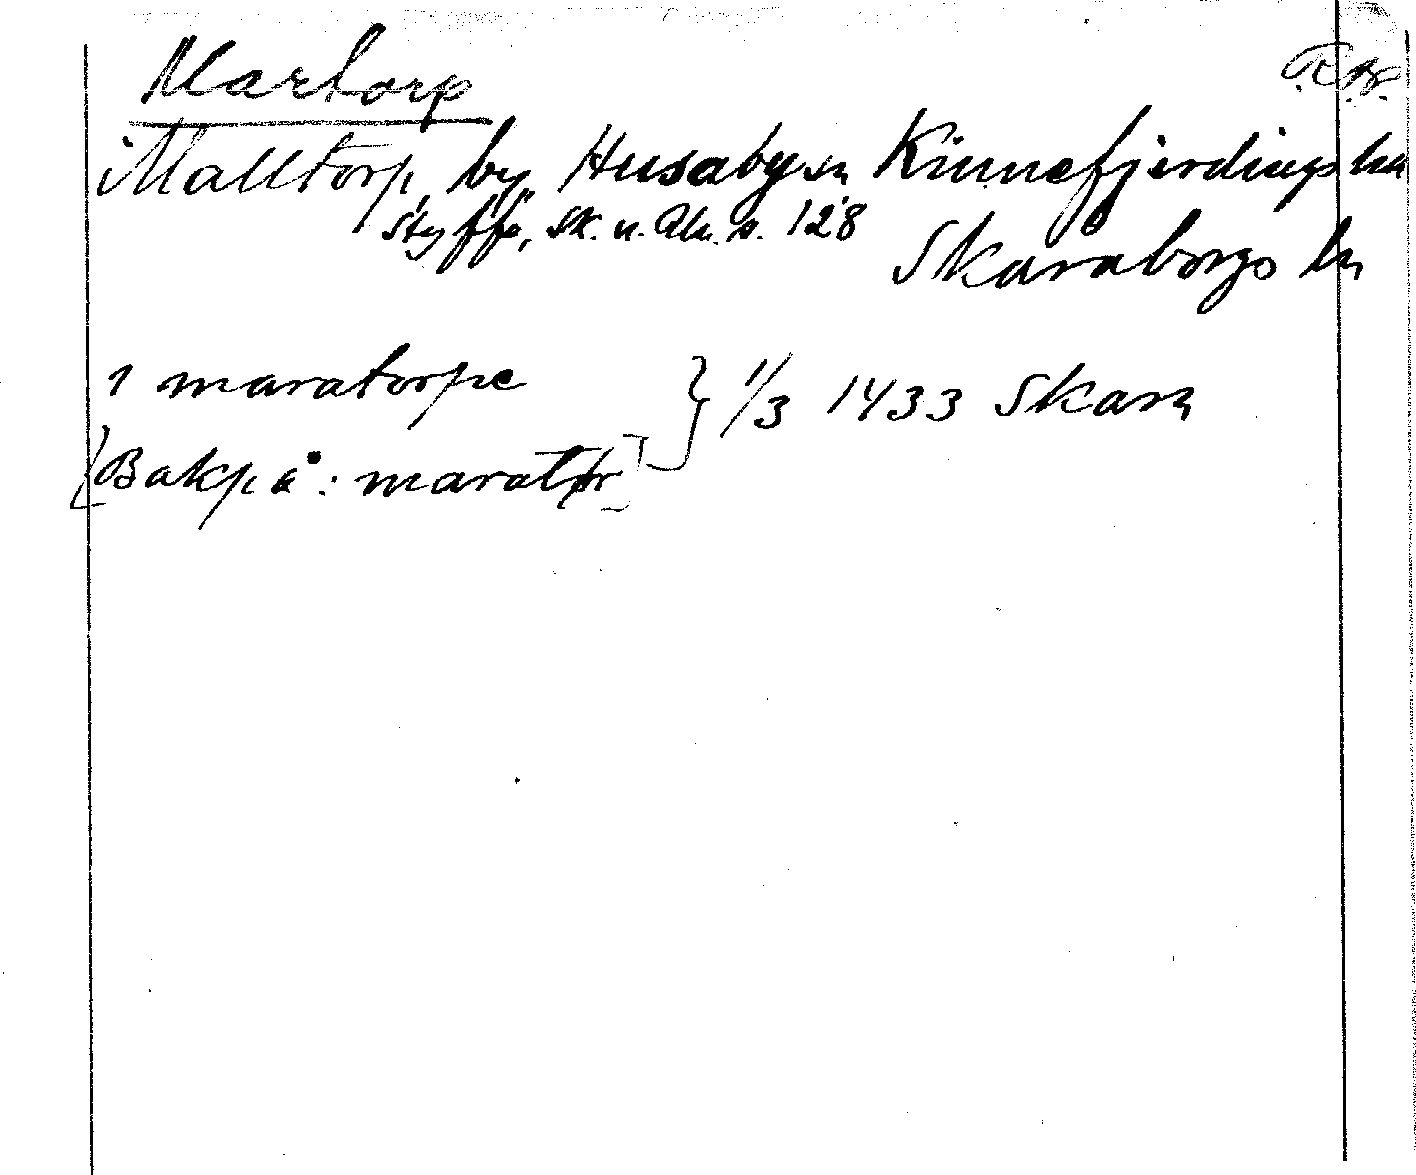 Martorp
R.A.
Malltorp, by, Husaby sn Kinnefjerdings hd
Styffe, Sk. u. Un. s. 128
Skaraborgs ln
i maratorpe } 1/3 1433 Skara
[Bakpå: marat]